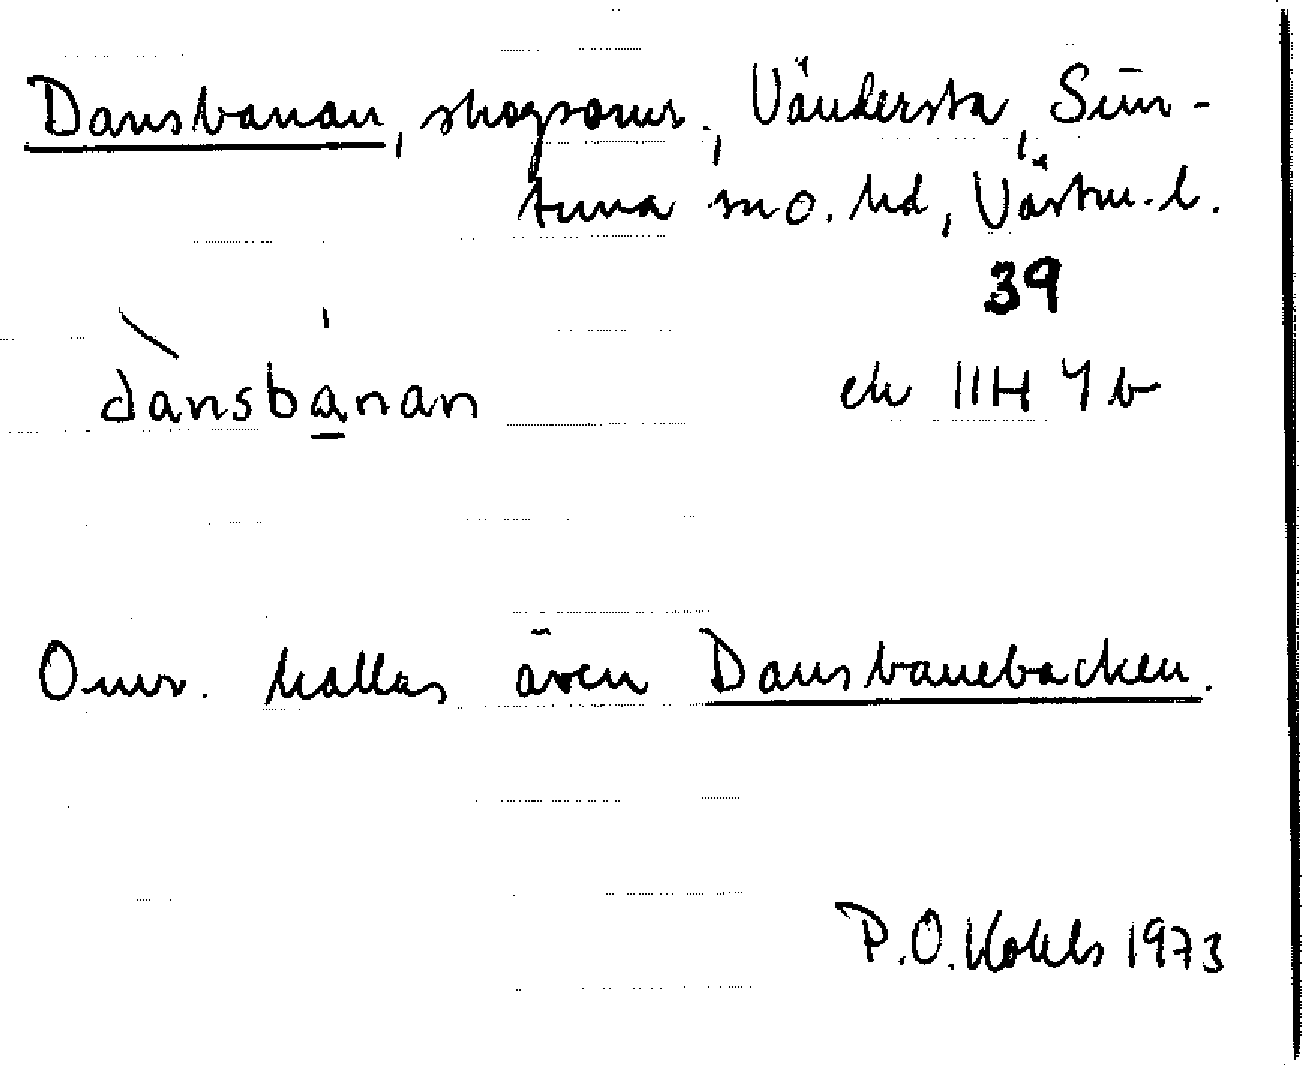 Dansbanan, skogsomr., Vändersta, Sim-
tuna sn o. hd, Västm. l.
39
dànsba̱nan
ek 11H 4b
Omr. kallas även Dansbanebacken.
P.O. Kohls 1973